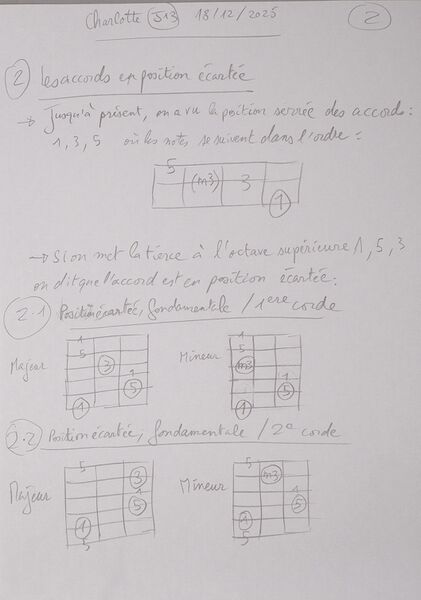 Charlotte S13 18/12/2025 2
2 Les accords en position écartée
→ Jusqu'à présent, on a vu la position serrée des accords :
1, 3, 5 où les notes se suivent dans l'ordre :
5 (m3) 3 1
→ Si on met la tierce à l'octave supérieure 1, 5, 3
on dit que l'accord est en position écartée :
2.1 Position écartée, fondamentale / 1ere corde
Majeur 1 5 3 1 5 1
Mineur 1 5 m3 1 5 1
2.2 Position écartée, fondamentale / 2e corde
Majeur 5 3 1 5 1 5
Mineur 5 m3 1 5 1 5